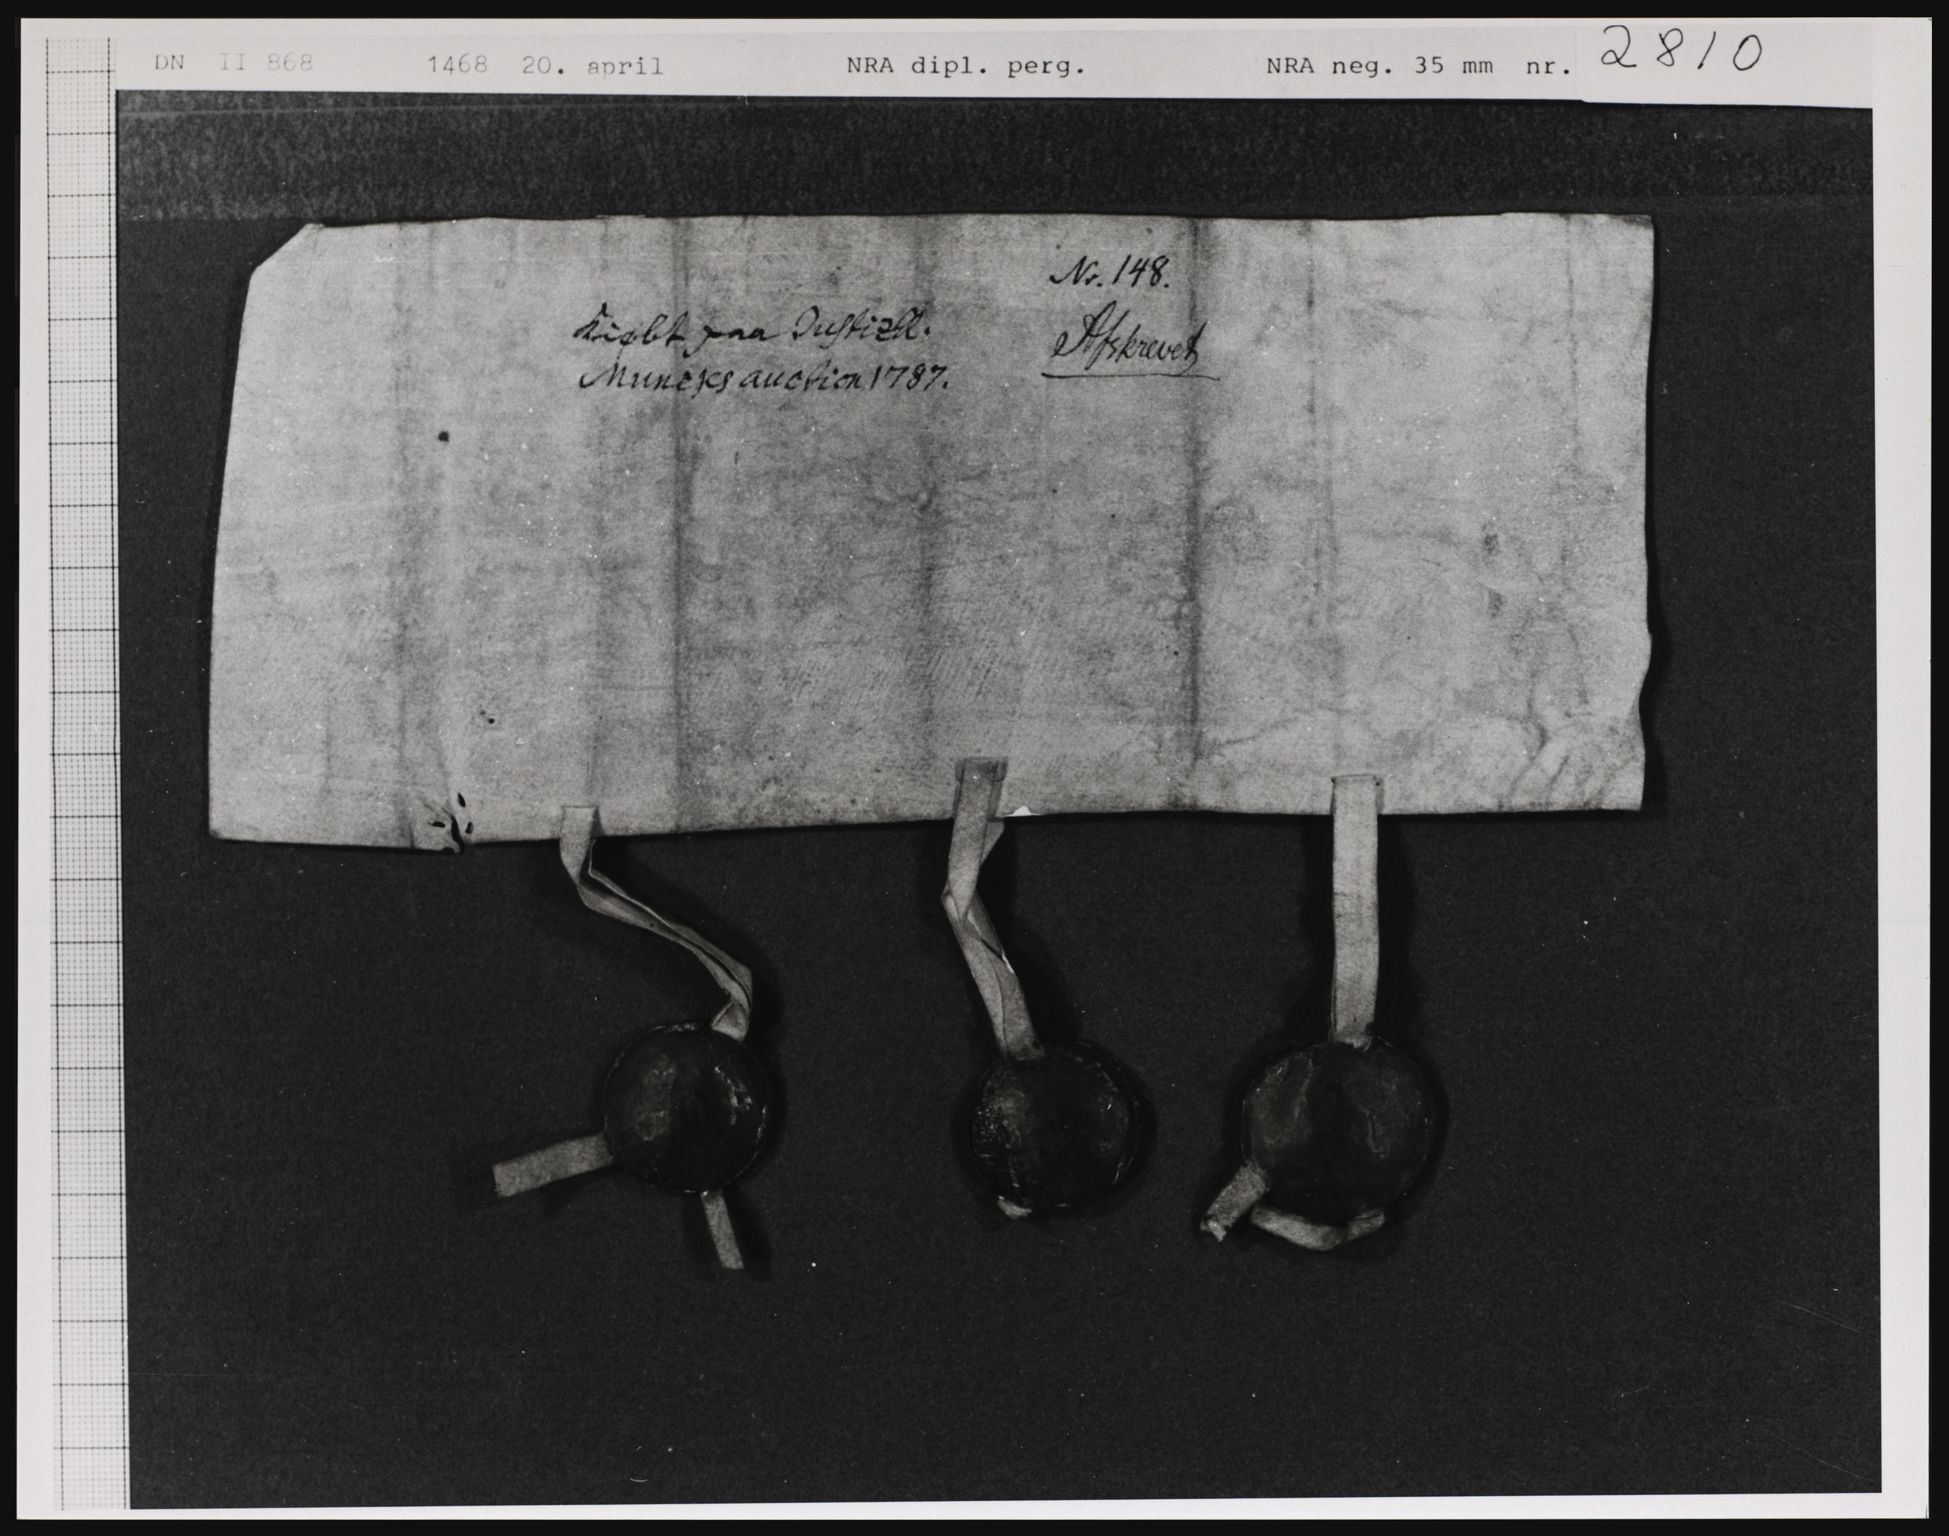 DN II 868 1468 20. april NRA dipl. perg. NRA neg. 35 mm nr. 2810
No. 148.
Afskrevet
Kiøbt paa Justizll.
Muncks auction 1787.